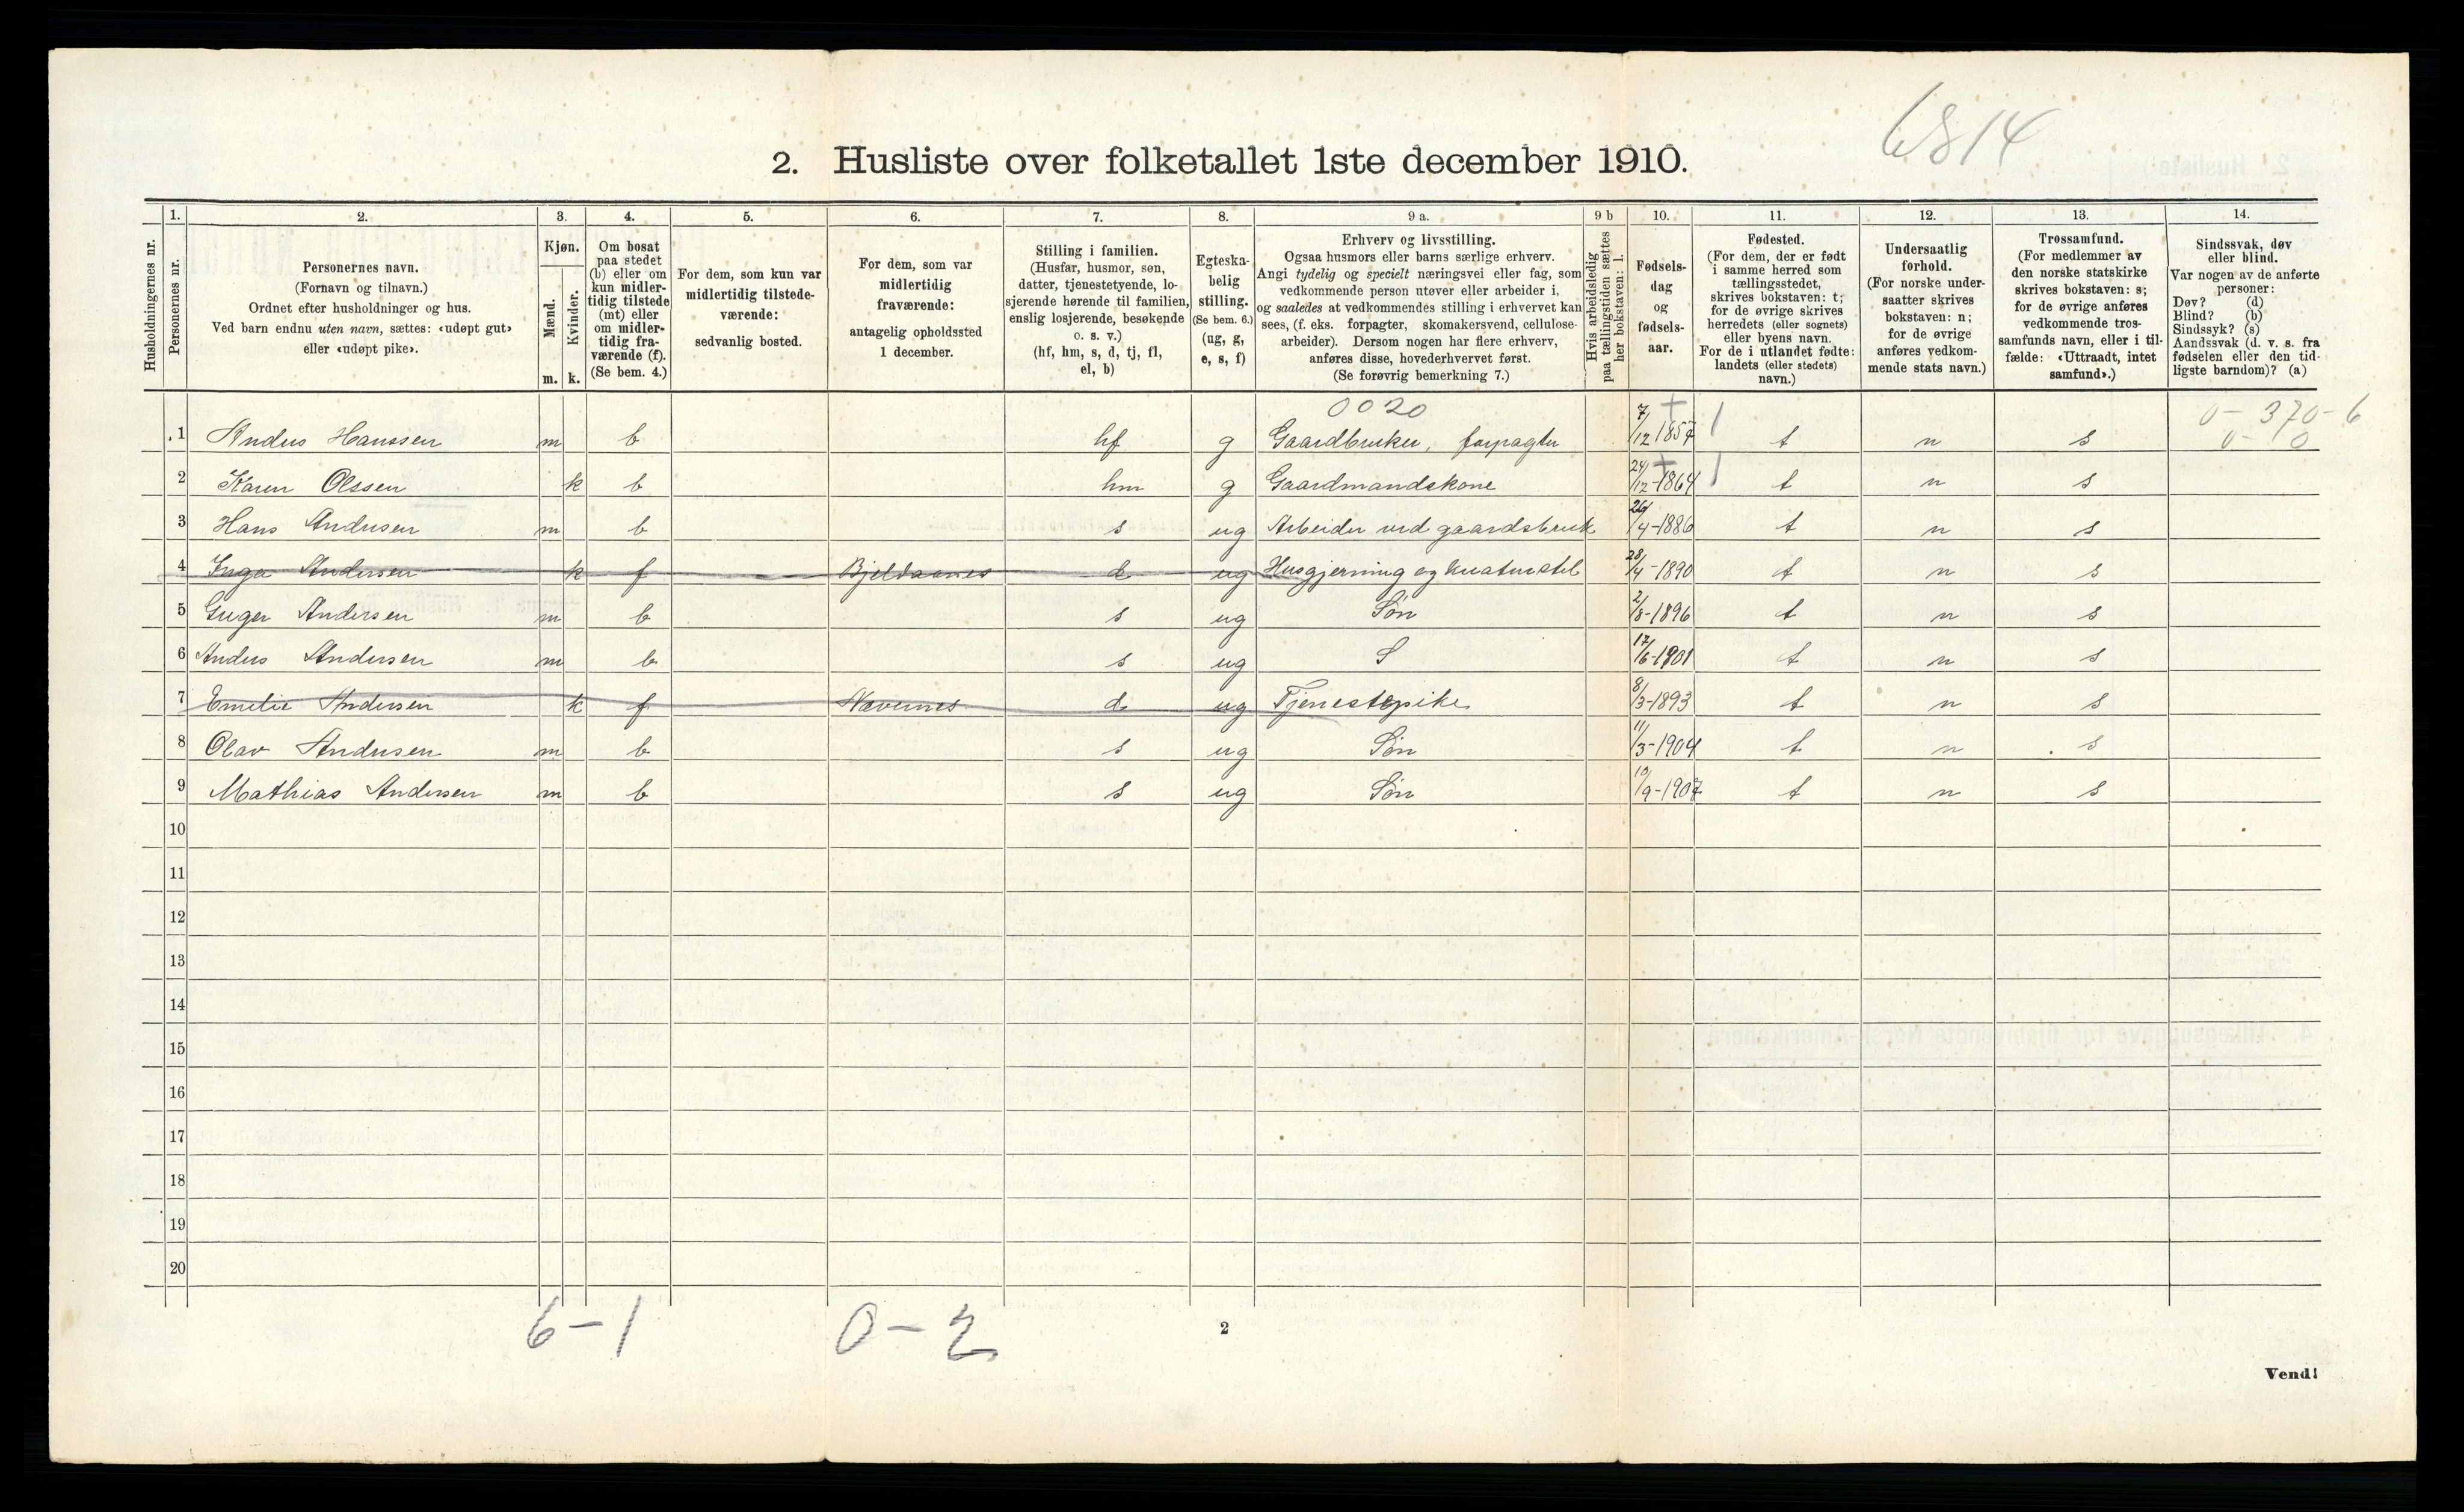 6814
2. Husliste over folketallet 1ste december 1910.
Husholdningernes nr.
1. Personernes nr.
2. Personernes navn. (Fornavn og tilnavn.) Ordnet efter husholdninger og hus. Ved barn endnu uten navn, sættes: «udøpt gut» eller «udøpt pike».
3. Kjøn. Mænd. m. Kvinder. k.
4. Om bosat paa stedet (b) eller om kun midler-tidig tilstede (mt) eller om midler-tidig fra-værende (f). (Se bem. 4.)
5. For dem, som kun var midlertidig tilstede-værende: sedvanlig bosted.
6. For dem, som var midlertidig fraværende: antagelig opholdssted 1 december.
7. Stilling i familien. (Husfar, husmor, søn, datter, tjenestetyende, lo-sjerende hørende til familien, enslig losjerende, besøkende o. s. v.) (hf, hm, s, d, tj, fl, el, b)
8. Egteska-belig stilling. (Se bem. 6.) (ug, g, e, s, f)
9 a. Erhverv og livsstilling. Ogsaa husmors eller barns særlige erhverv. Angi tydelig og specielt næringsvei eller fag, som vedkommende person utøver eller arbeider i, og saaledes at vedkommendes stilling i erhvervet kan sees, (f. eks. forpagter, skomakersvend, cellulose-arbeider). Dersom nogen har flere erhverv, anføres disse, hovederhvervet først. (Se forøvrig bemerkning 7.)
9 b Hvis arbeidsledig paa tællingstiden sættes her bokstaven: l.
10. Fødsels-dag og fødsels-aar.
11. Fødested. (For dem, der er født i samme herred som tællingsstedet, skrives bokstaven: t; for de øvrige skrives herredets (eller sognets) eller byens navn. For de i utlandet fødte: landets (eller stedets) navn.)
12. Undersaatlig forhold. (For norske under-saatter skrives bokstaven: n; for de øvrige anføres vedkom-mende stats navn.)
13. Trossamfund. (For medlemmer av den norske statskirke skrives bokstaven: s; for de øvrige anføres vedkommende tros-samfunds navn, eller i til-fælde: «Uttraadt, intet samfund».)
14. Sindssvak, døv eller blind. Var nogen av de anførte personer: Døv? (d) Blind? (b) Sindssyk? (s) Aandssvak (d. v. s. fra fødselen eller den tid-ligste barndom)? (a)
0020 0 - 370 - 6
0 - 0
1 Anders Hanssen m b hf g Gaardbruker, forpagter 7/12 1857 t n s
2 Karen Olssen k b hm g Gaardmandskone 24/12-1864 t n s
3 Hans Andersen m b s ug Arbeider ved gaardsbruk 26/4-1886 t n s
4 Inga Andersen k f Bjeldaanes d ug Husgjerning og kreaturstel 28/4-1890 t n s
5 Andersen m b s ug Søn 2/8-1896 t n s
6 Anders Andersen m b s ug S 17/6-1901 t n s
7 Emelie Andersen k f Nævernes d ug Tjenestepike 8/3-1893 t n s
8 Olav Andersen m b s ug Søn 11/3-1904 t n s
9 Mathias Andersen m b s ug Søn 10/9-1907 t n s
10
11
12
13
14
15
16
17
18
19
20
6-1 0-2
2
Vend!